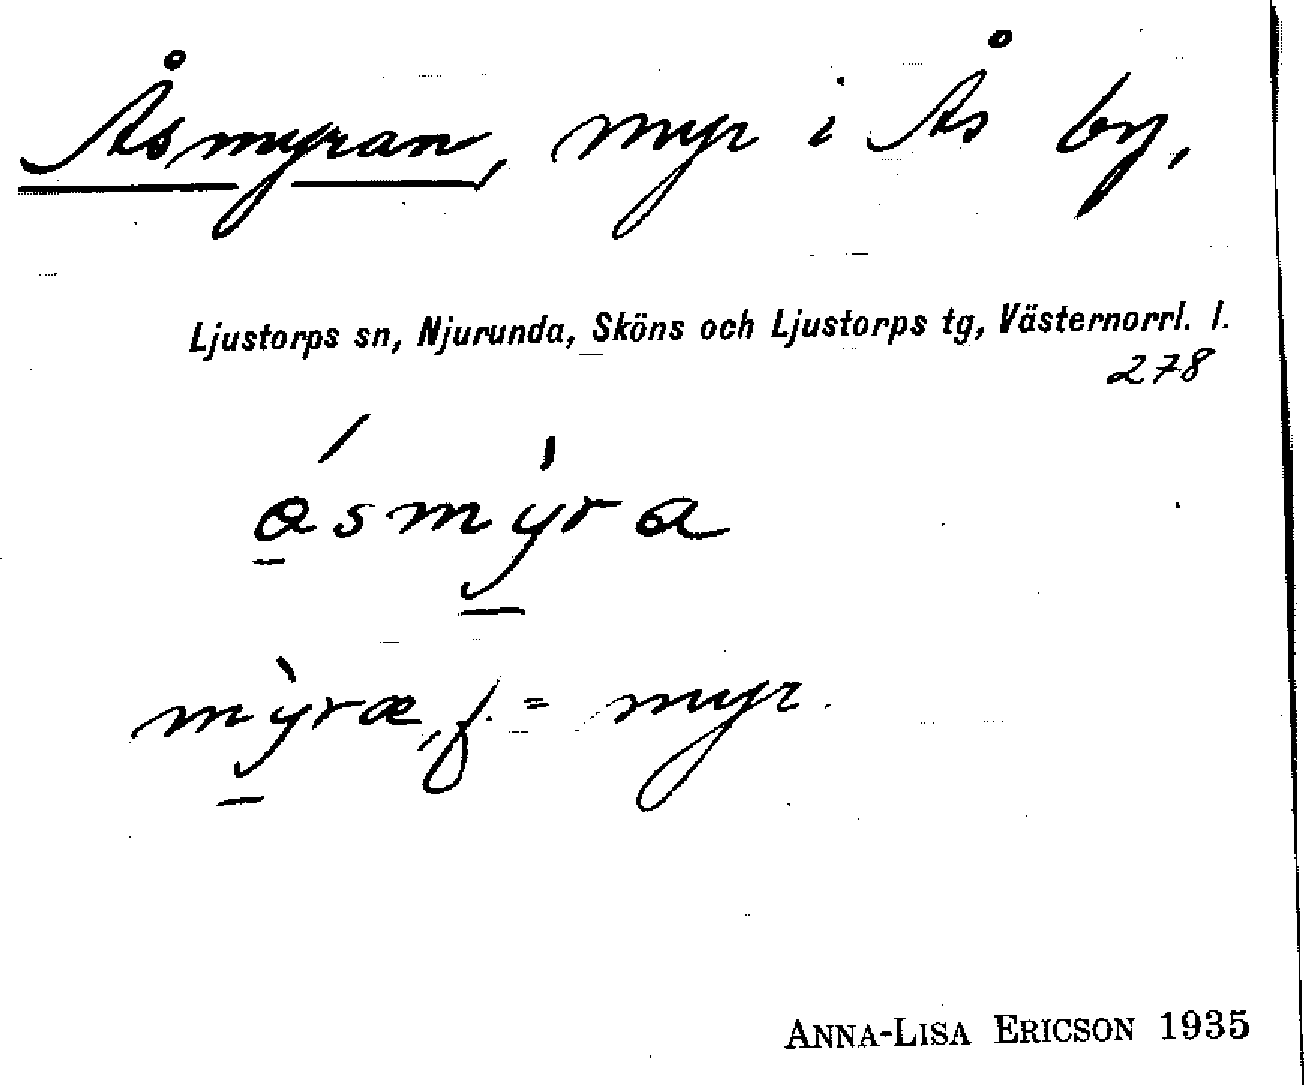 Åsmyran, myr i Ås by,
Ljustorps sn, Njurunda, Sköns och Ljustorps tg, Västernorrl. l.
278
åsmy̲ra
my̲ræ, f. = myr.
ANNA-LISA ERICSON 1935